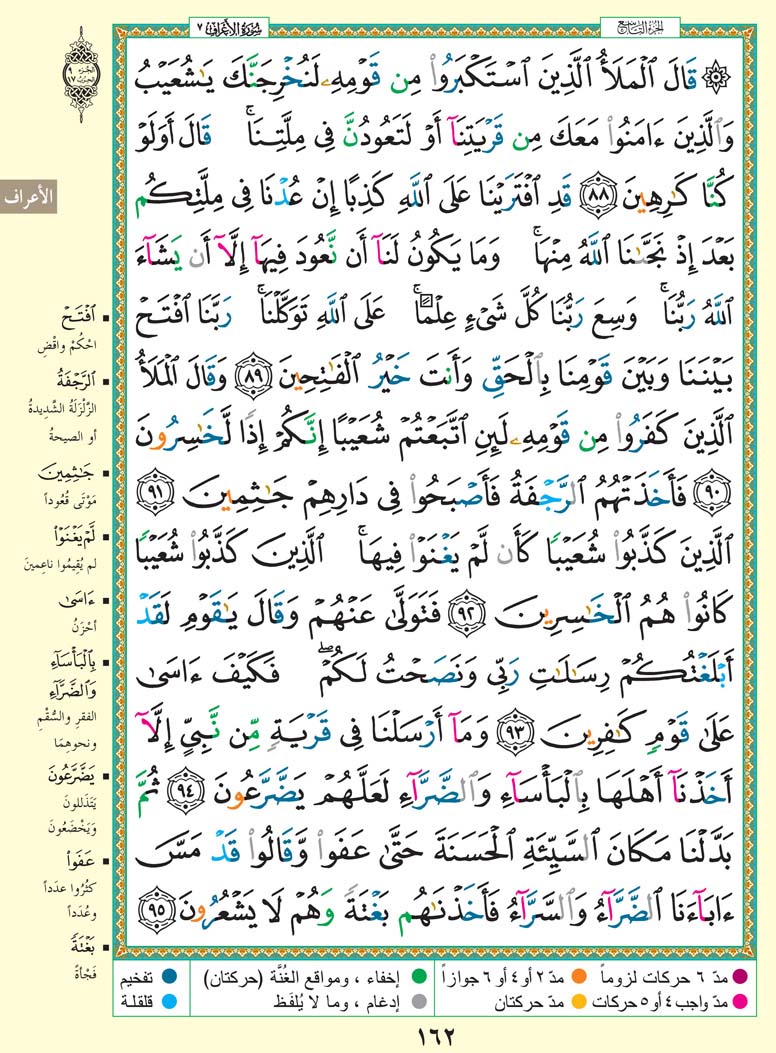 سُورَةُ الأَعْرَافِ ٧
الجُزْءُ التَّاسِعُ
الجزء ٩
الحزب ١٧
الأعراف
۞ قَالَ ٱلْمَلَأُ ٱلَّذِينَ ٱسْتَكْبَرُوا۟ مِن قَوْمِهِۦ لَنُخْرِجَنَّكَ يَـٰشُعَيْبُ
وَٱلَّذِينَ ءَامَنُوا۟ مَعَكَ مِن قَرْيَتِنَآ أَوْ لَتَعُودُنَّ فِى مِلَّتِنَا ۚ قَالَ أَوَلَوْ
كُنَّا كَـٰرِهِينَ ﴿٨٨﴾ قَدِ ٱفْتَرَيْنَا عَلَى ٱللَّهِ كَذِبًا إِنْ عُدْنَا فِى مِلَّتِكُم
بَعْدَ إِذْ نَجَّىٰنَا ٱللَّهُ مِنْهَا ۚ وَمَا يَكُونُ لَنَآ أَن نَّعُودَ فِيهَآ إِلَّآ أَن يَشَآءَ
ٱللَّهُ رَبُّنَا ۚ وَسِعَ رَبُّنَا كُلَّ شَىْءٍ عِلْمًا ۚ عَلَى ٱللَّهِ تَوَكَّلْنَا ۚ رَبَّنَا ٱفْتَحْ
بَيْنَنَا وَبَيْنَ قَوْمِنَا بِٱلْحَقِّ وَأَنتَ خَيْرُ ٱلْفَـٰتِحِينَ ﴿٨٩﴾ وَقَالَ ٱلْمَلَأُ
ٱلَّذِينَ كَفَرُوا۟ مِن قَوْمِهِۦ لَئِنِ ٱتَّبَعْتُمْ شُعَيْبًا إِنَّكُمْ إِذًا لَّخَـٰسِرُونَ
﴿٩٠﴾ فَأَخَذَتْهُمُ ٱلرَّجْفَةُ فَأَصْبَحُوا۟ فِى دَارِهِمْ جَـٰثِمِينَ ﴿٩١﴾
ٱلَّذِينَ كَذَّبُوا۟ شُعَيْبًا كَأَن لَّمْ يَغْنَوْا۟ فِيهَا ۚ ٱلَّذِينَ كَذَّبُوا۟ شُعَيْبًا
كَانُوا۟ هُمُ ٱلْخَـٰسِرِينَ ﴿٩٢﴾ فَتَوَلَّىٰ عَنْهُمْ وَقَالَ يَـٰقَوْمِ لَقَدْ
أَبْلَغْتُكُمْ رِسَـٰلَـٰتِ رَبِّى وَنَصَحْتُ لَكُمْ ۖ فَكَيْفَ ءَاسَىٰ
عَلَىٰ قَوْمٍ كَـٰفِرِينَ ﴿٩٣﴾ وَمَآ أَرْسَلْنَا فِى قَرْيَةٍ مِّن نَّبِىٍّ إِلَّآ
أَخَذْنَآ أَهْلَهَا بِٱلْبَأْسَآءِ وَٱلضَّرَّآءِ لَعَلَّهُمْ يَضَّرَّعُونَ ﴿٩٤﴾ ثُمَّ
بَدَّلْنَا مَكَانَ ٱلسَّيِّئَةِ ٱلْحَسَنَةَ حَتَّىٰ عَفَوا۟ وَّقَالُوا۟ قَدْ مَسَّ
ءَابَآءَنَا ٱلضَّرَّآءُ وَٱلسَّرَّآءُ فَأَخَذْنَـٰهُم بَغْتَةً وَهُمْ لَا يَشْعُرُونَ ﴿٩٥﴾
▪ ٱفْتَحْ
احْكُمْ واقْضِ
▪ ٱلرَّجْفَةُ
الزَّلْزَلَةُ الشَّدِيدةُ
أو الصيحةُ
▪ جَـٰثِمِينَ
مَوْتَى قُعُوداً
▪ لَّمْ يَغْنَوْا۟
لم يُقِيمُوا ناعِمينَ
▪ ءَاسَىٰ
أحْزَنُ
▪ بِٱلْبَأْسَآءِ
وَٱلضَّرَّآءِ
الفقرِ والسُّقْمِ
ونحوِهِمَا
▪ يَضَّرَّعُونَ
يَتَذَللونَ
وَيَخْضَعُونَ
▪ عَفَوا۟
كَثُرُوا عدَداً
وعُدَداً
▪ بَغْتَةً
فَجْأةً
مدّ ٦ حركات لزوماً
مدّ ٢ أو ٤ أو ٦ جوازاً
إخفاء ، ومواقع الغُنَّة (حركتان)
تفخيم
مدّ واجب ٤ أو ٥ حركات
مدّ حركتان
إدغام ، وما لا يُلفَظ
قلقلة
١٦٢